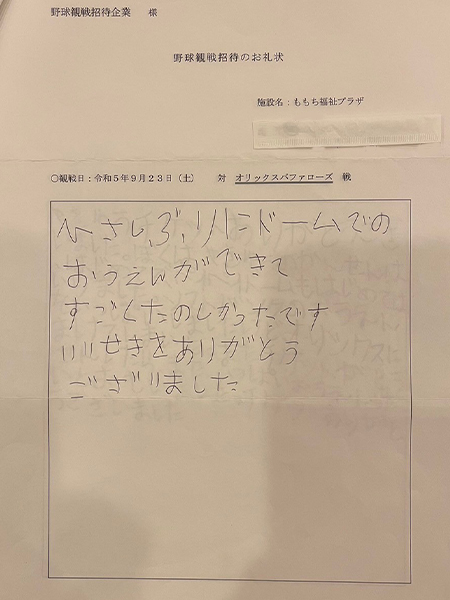 野球観戦招待企業 様
野球観戦招待のお礼状
施設名：ももち福祉プラザ
○観戦日：令和5年9月23日（土） 対 オリックスバファローズ 戦
ひさしぶりにドームでの
おうえんができて
すごくたのしかったです
いいせきをありがとう
ございました